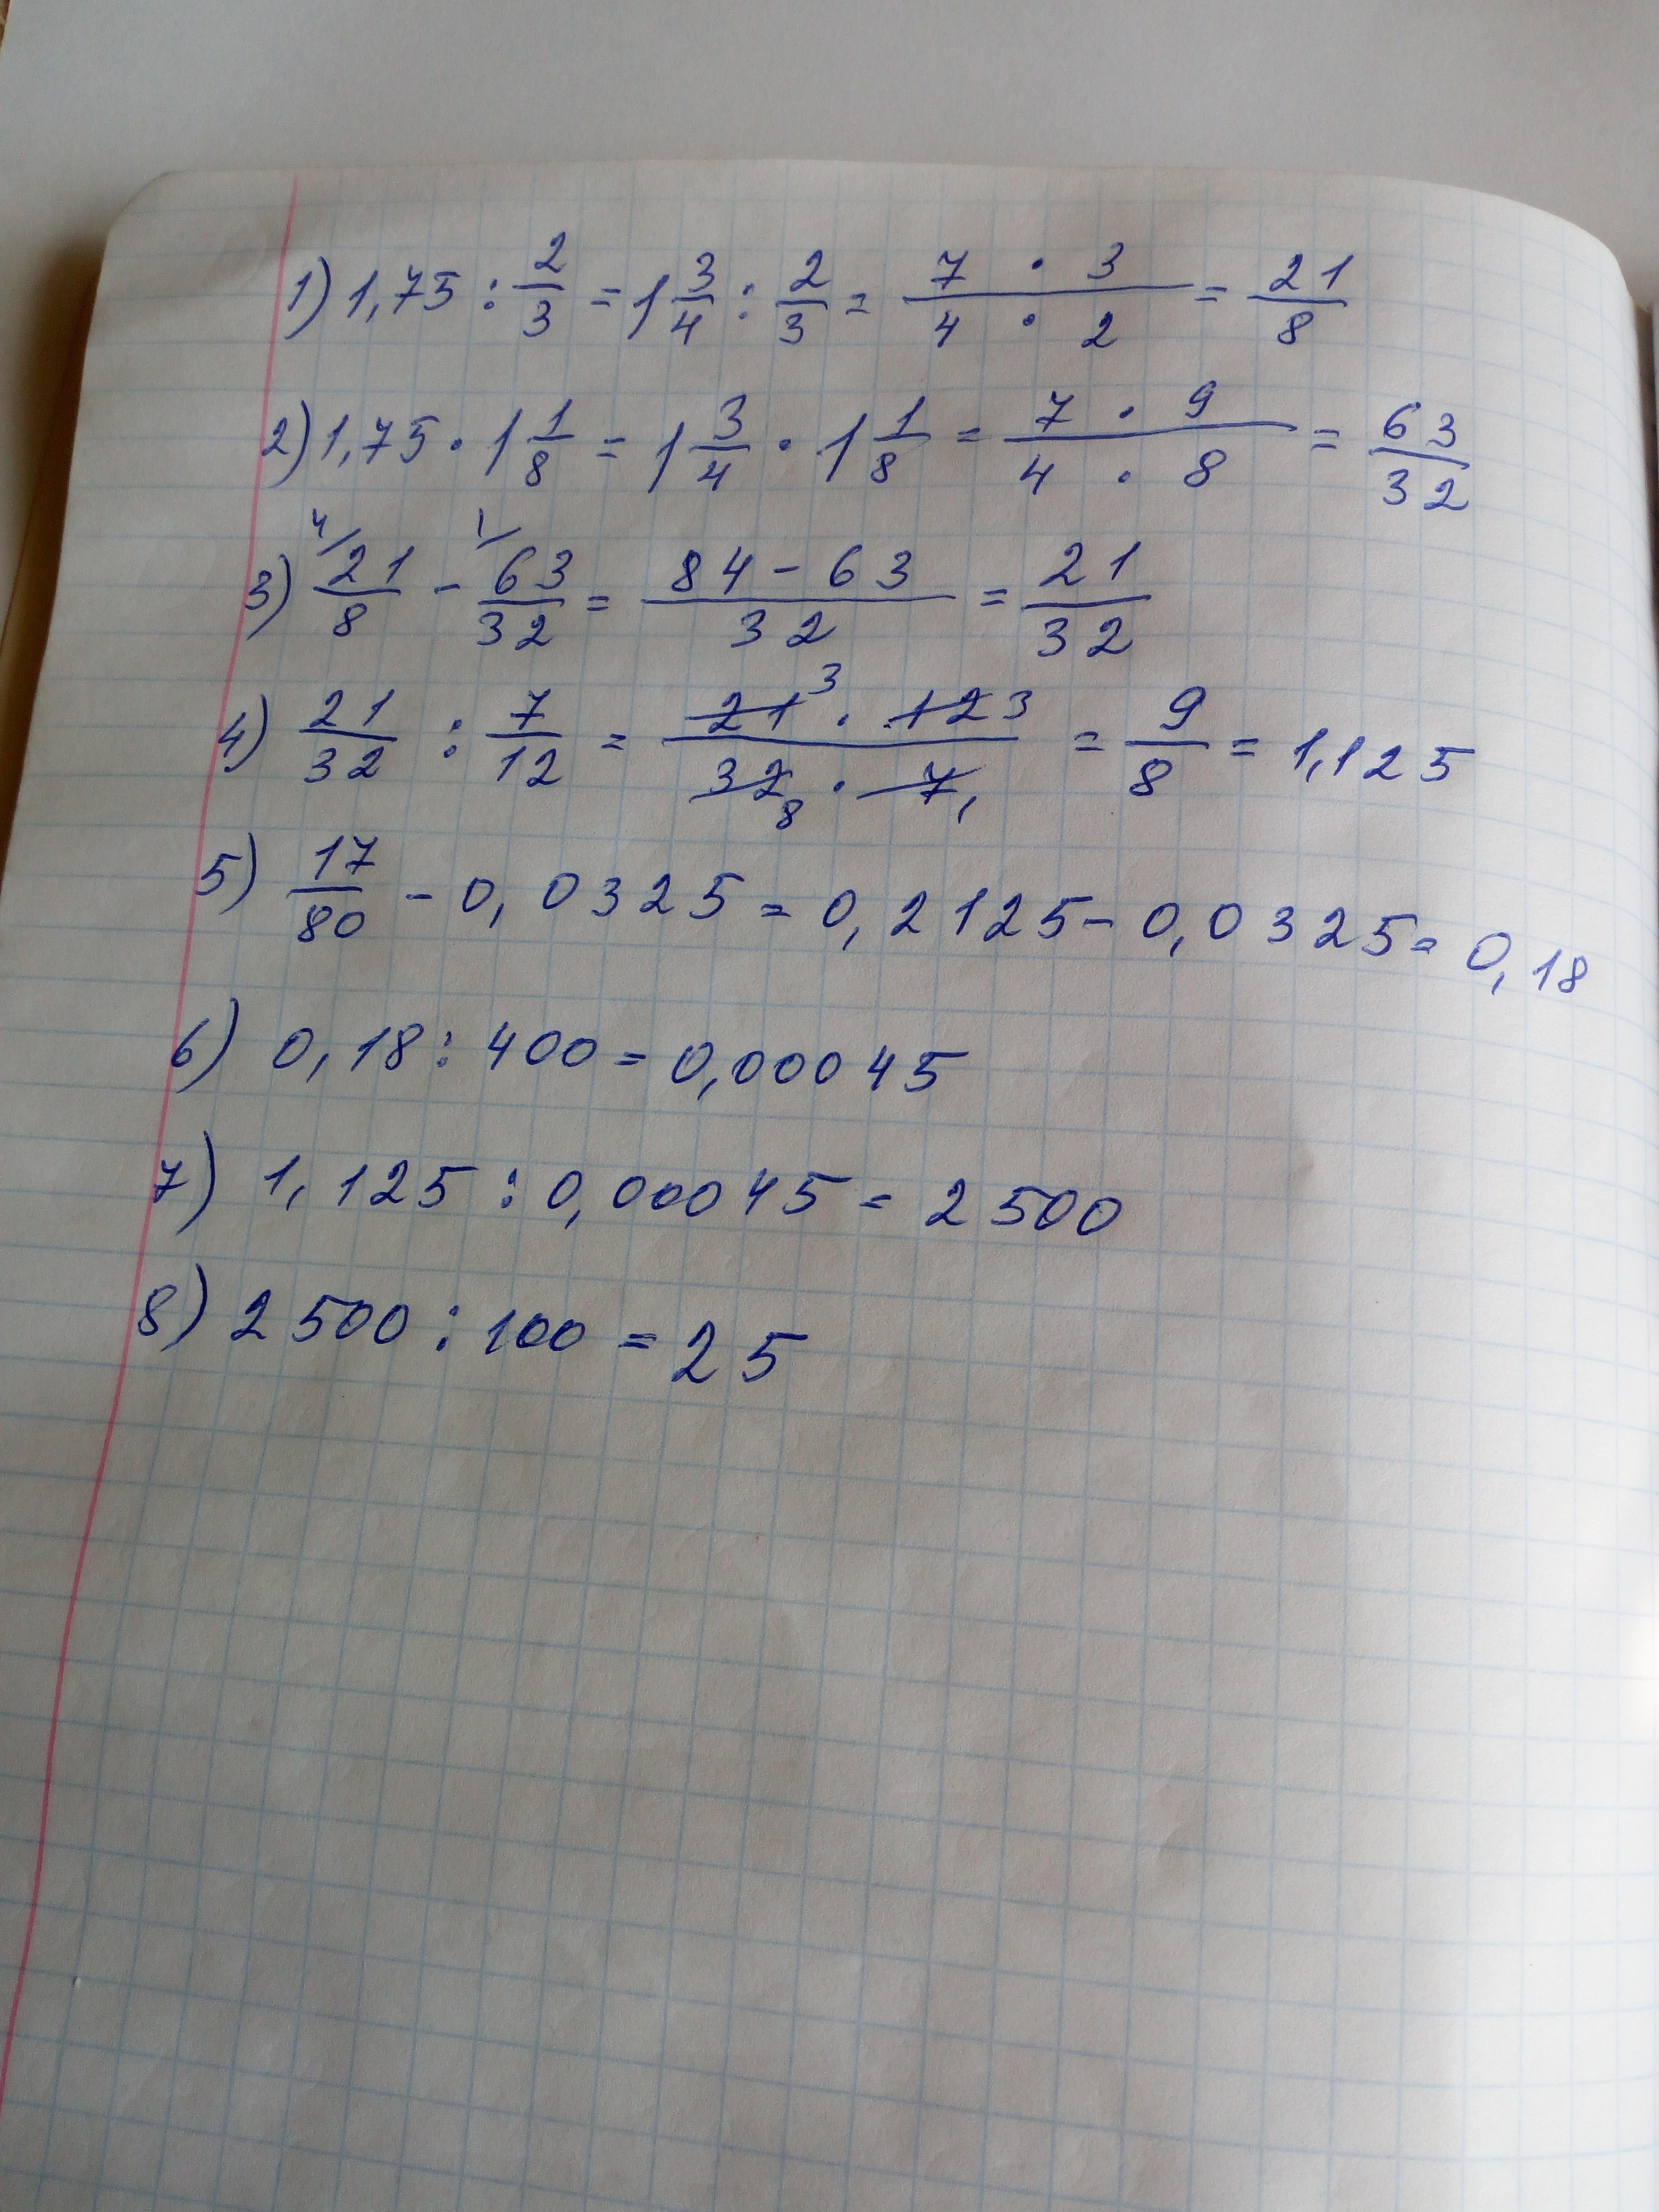 1) 1,75 : 2/3 = 1 3/4 : 2/3 = (7 · 3)/(4 · 2) = 21/8
2) 1,75 · 1 1/8 = 1 3/4 · 1 1/8 = (7 · 9)/(4 · 8) = 63/32
3) 4/ 21/8 - 1/ 63/32 = (84 - 63)/32 = 21/32
4) 21/32 : 7/12 = (21 3 · 12 3)/(32 8 · 7 1) = 9/8 = 1,125
5) 17/80 - 0,0325 = 0,2125 - 0,0325 = 0,18
6) 0,18 : 400 = 0,00045
7) 1,125 : 0,00045 = 2500
8) 2500 : 100 = 25